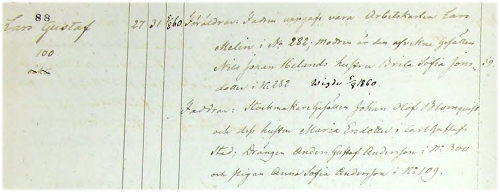 88.
Lars Gustaf 27 31 5/8 60 Föräldrar: Fadren uppgafs vara Arbetskarlen Lars
100 Malin i No 282; modren är den afvekne Gesällen
Nils Johan Helands hustru Brita Sofia Jons- 39
dotter i No 282 Vigde 5/8 1860.
Faddrar: Stenhuggaregesällen Johan Olof Blomqvist
och dess hustru Maria Ersdotter i Carl Gustafs
Stad; Drängen Anders Gustaf Andersson i No 300
och pigan Anna Sofia Andersson i No 109.